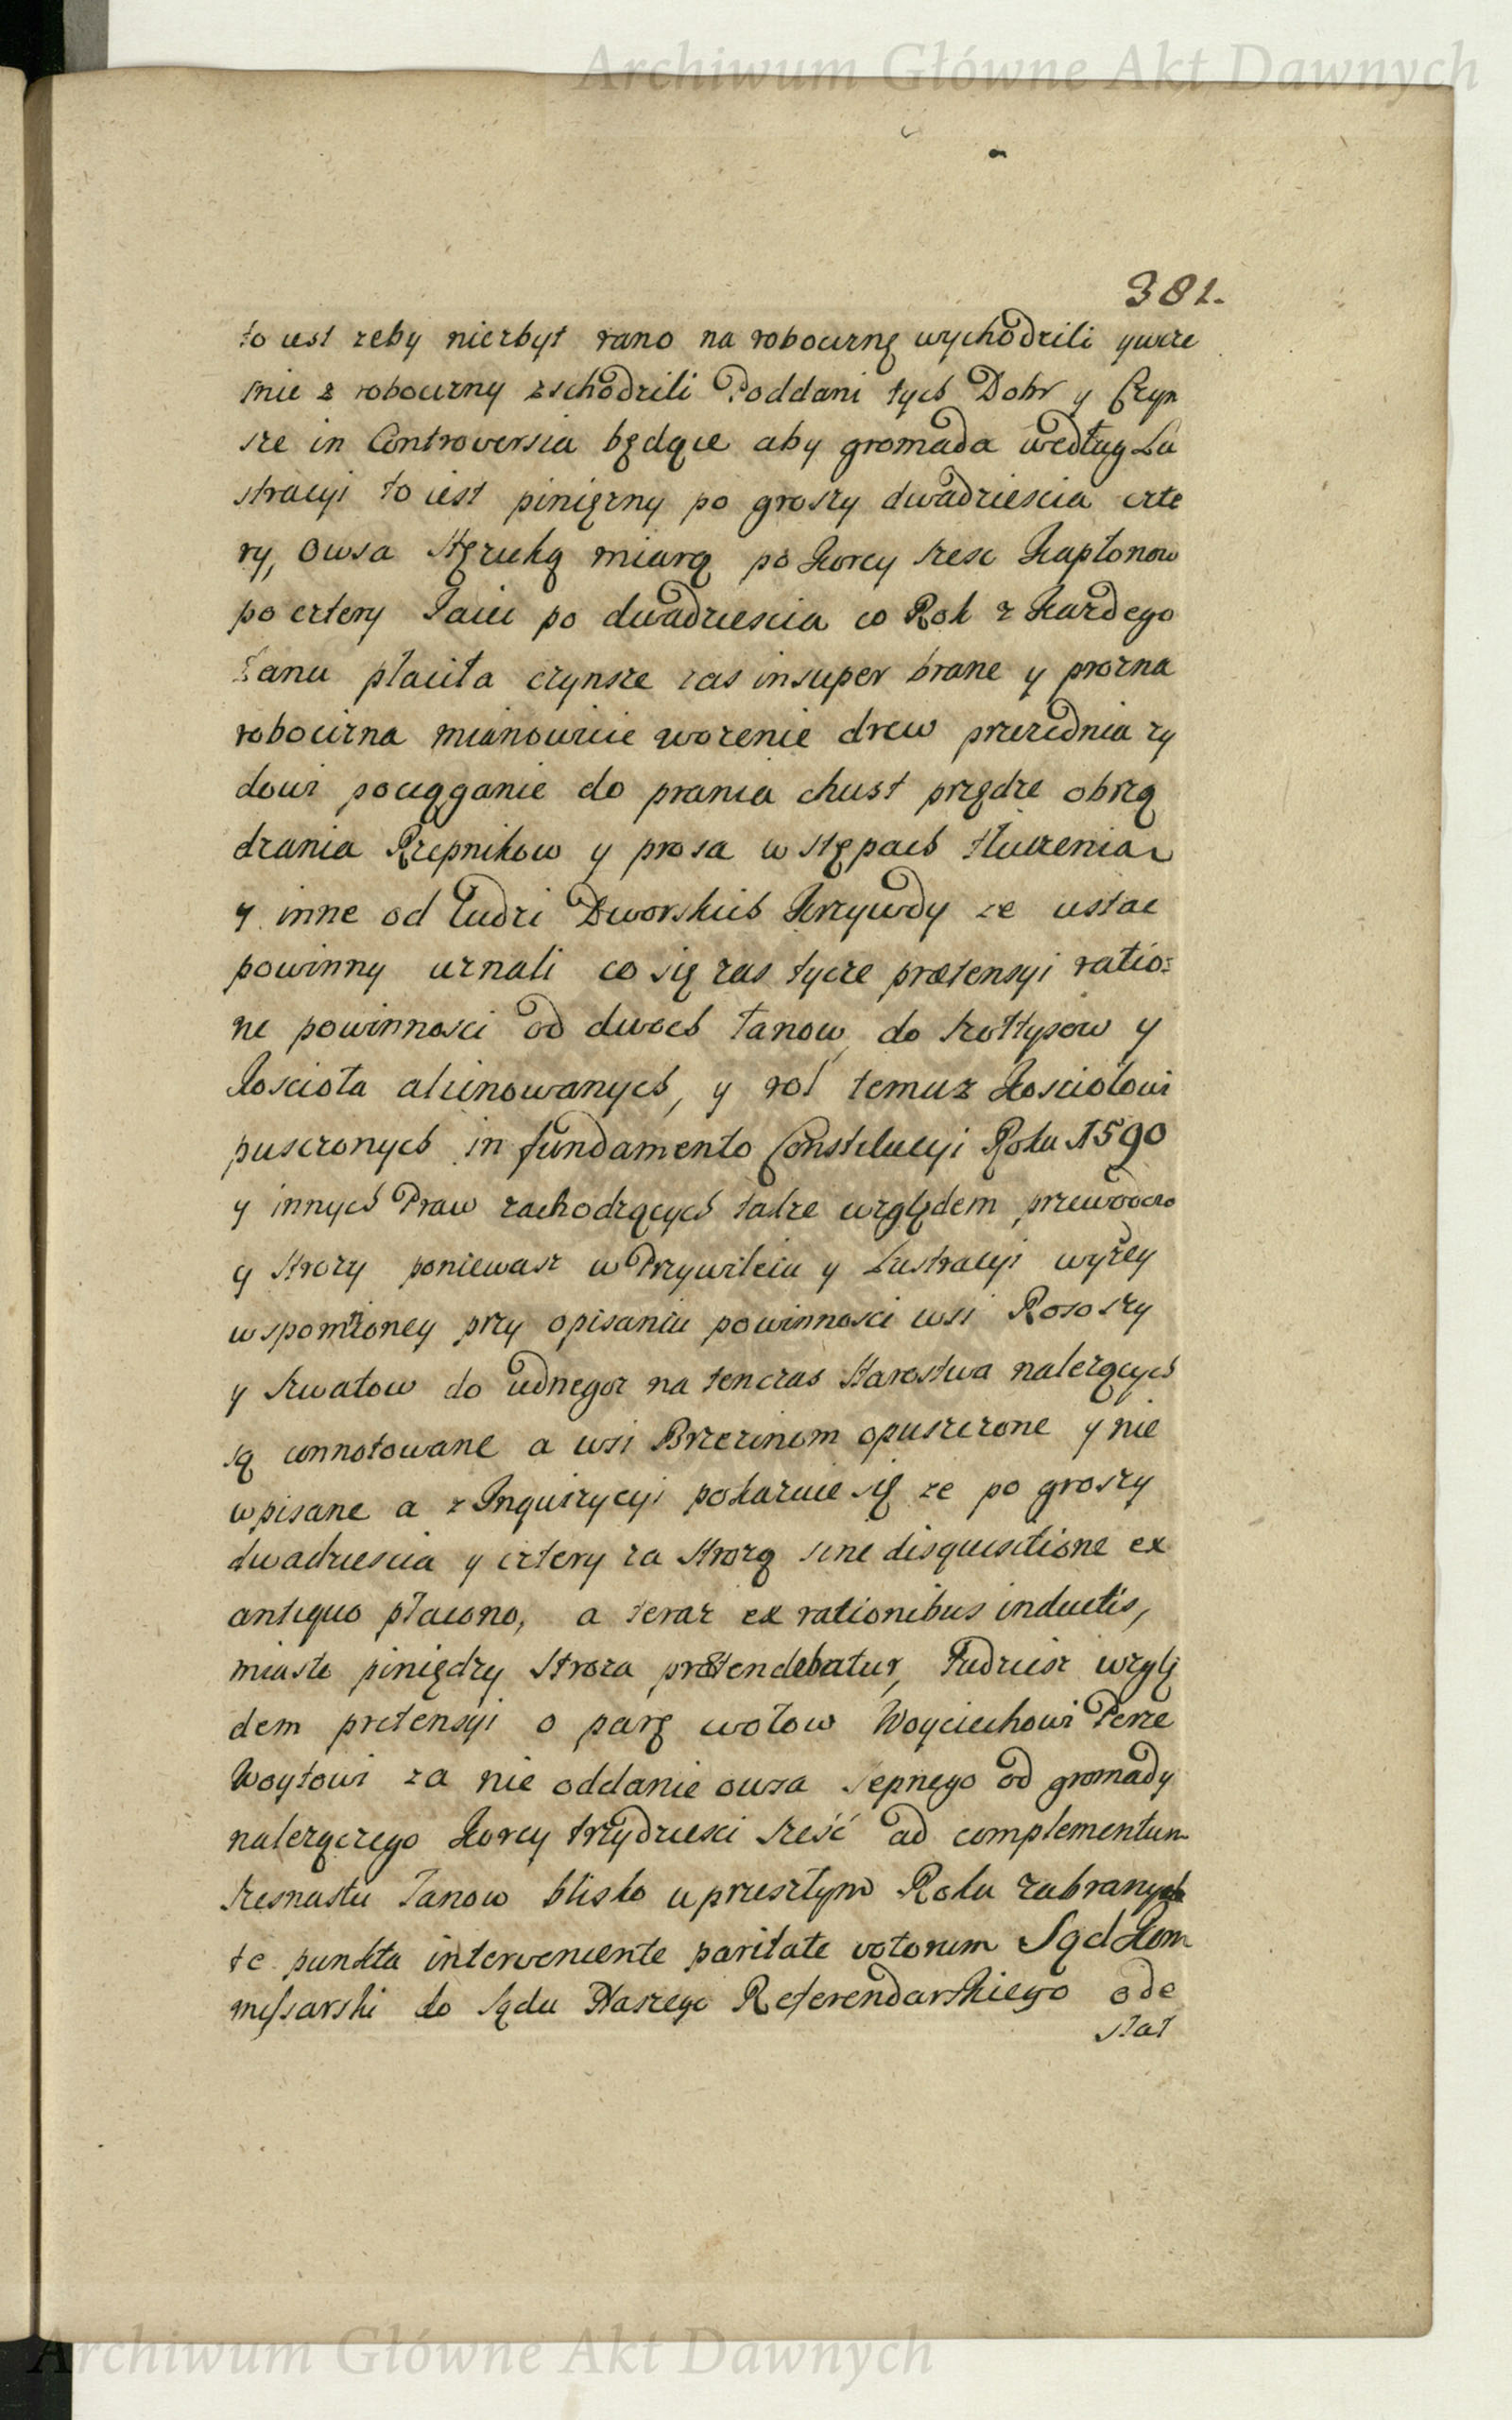 Archiwum Główne Akt Dawnych
381.
to iest zeby niezbyt rano na robociznę wychodzili y wcze
snie z robocizny zschodzili Poddani tych Dobr y Czyn
sze in Controversia będące aby gromada według Lu
stracyi to iest pinięzny po groszy dwadziescia czte
ry, Owsa Stęzicką miarą po Korcy szesc Kapłonow
po cztery Jaiec po dwadziescia co Rok z Kazdego
Łanu płaciła czynsze zas insuper brane y prozna
robocizna mianowicie wozenie drew przezednia zy
dowi pociąganie do prania chust przędze obrzą
dzania Rzepnikow y prosa w stępach tłuczenia
y inne od Ludzi Dworskich Krzywdy ze ustac
powinny uznali co się zas tycze prætensyi ratio=
ne powinnosci od dwoch Łanow do szołtysow y
Koscioła alienowanych, y rol temuz Kosciołowi
pusczonych in fundamento Constitucyi Roku 1590
y innych Praw zachodzących takze względem przewodow
y Strozy poniewasz w Przywileiu y Lustracyi wyzey
wspomioney przy opisaniu powinnosci wsi Rososzy
y Swatow do iednegoz na tenczas Starostwa nalezących
są connotowane a wsi Brzezinom opuszczone y nie
wpisane a z Inquizycyi pokazuie się ze po groszy
dwadziescia y cztery za Strozą sine disquisitione ex
antiquo płacono, a teraz ex rationibus inductis,
miasto piniędzy Stroza prætendebatur, Tudziesz wzglę
dem pretensyi o parę wołow Woyciechowi Perze
Woytowi za nie oddanie owsa Sepnego od gromady
nalezączego Korcy trzydziesci sześć ad complementum
szesnastu Łanow blisko w przeszłym Roku zabranych
te punkta interveniente paritate votorum Sąd Kom
myssarski do Sądu Naszego Referendarskiego ode
słał
Archiwum Główne Akt Dawnych